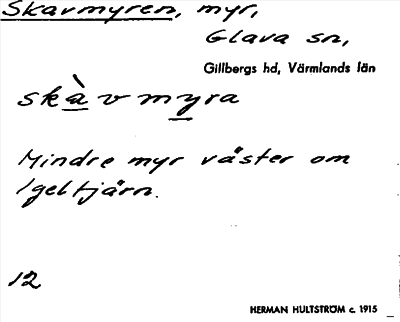 Skavmyren, myr,
Glava sn,
Gillbergs hd, Värmlands län
skàvmyra
Mindre myr väster om
Igeltjärn.
12
HERMAN HULTSTRÖM c. 1915